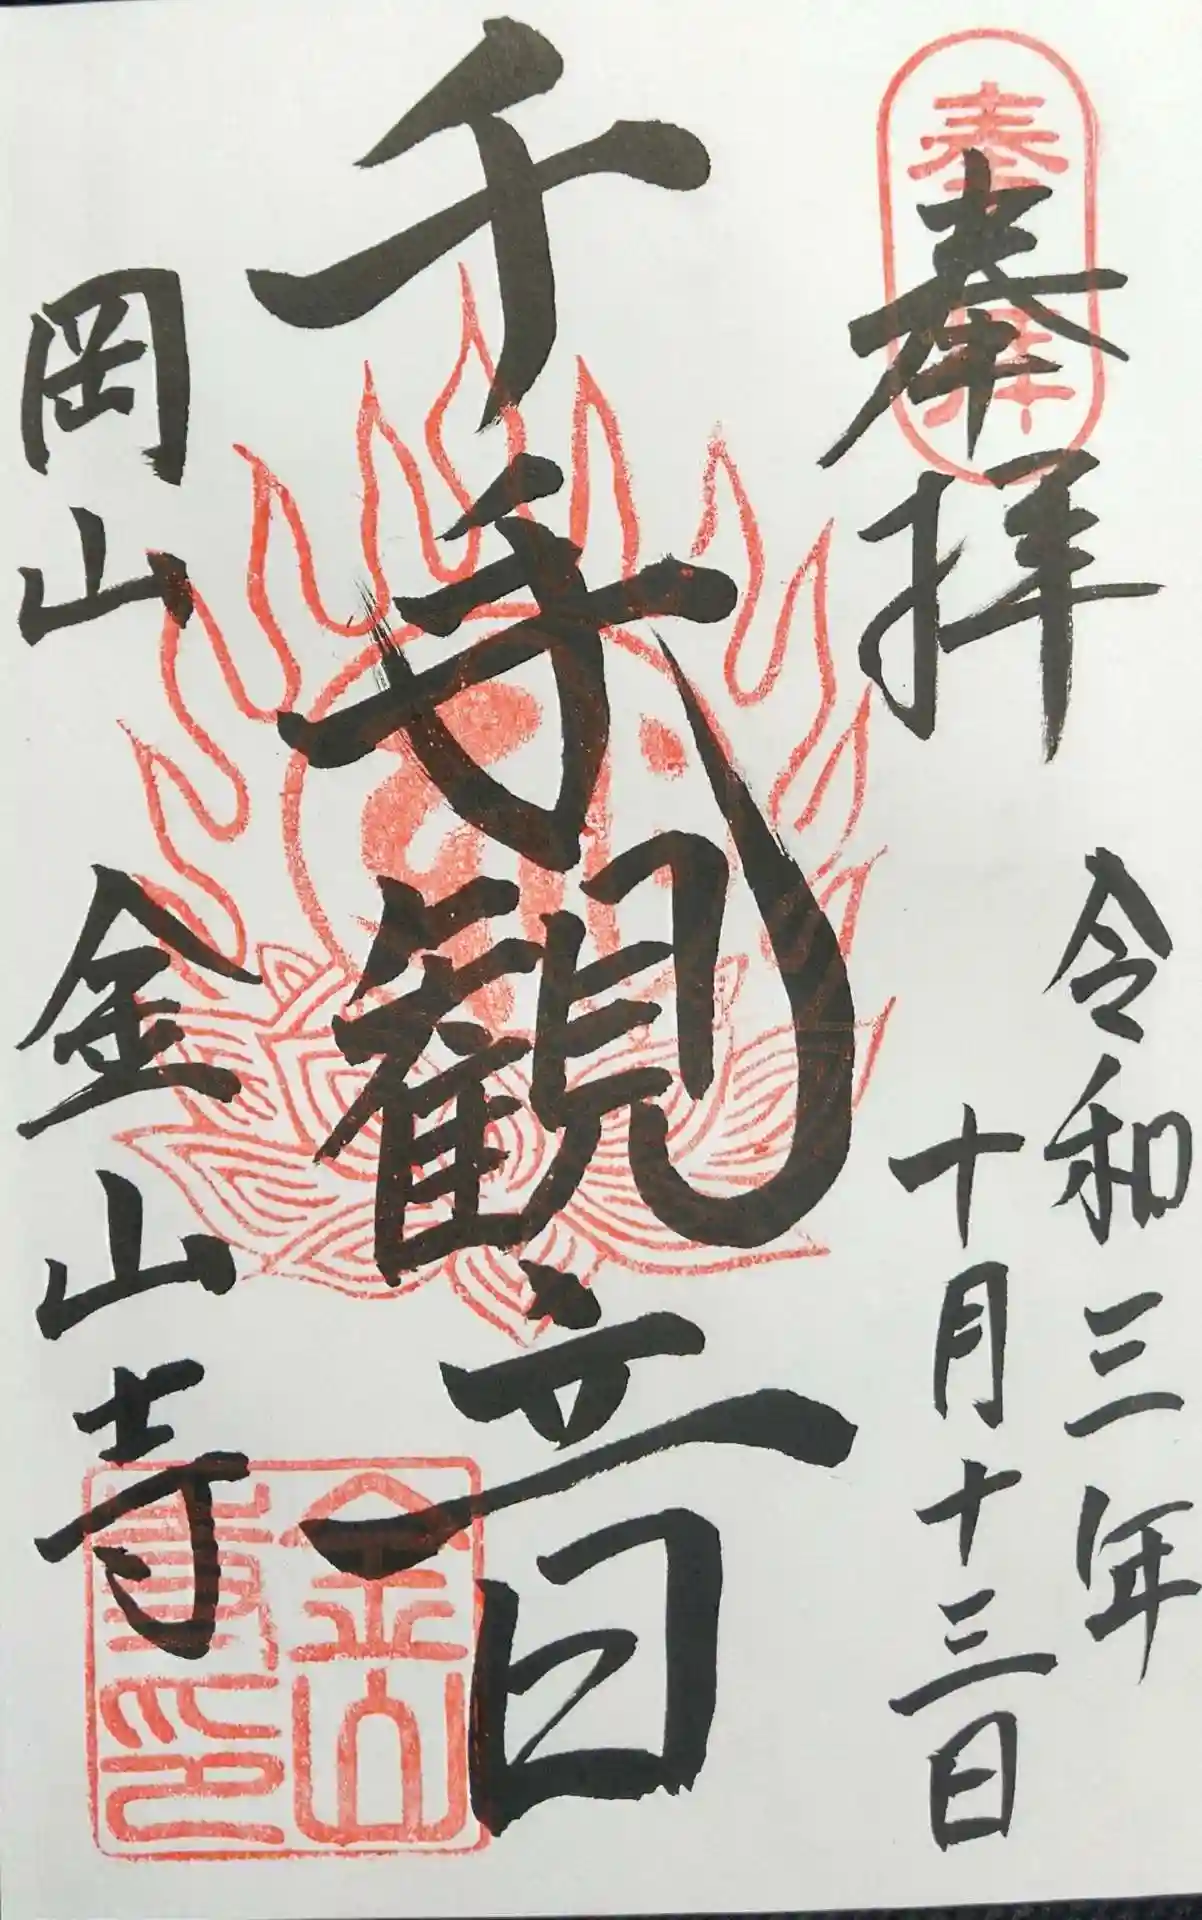 奉拝
令和三年
十月十三日
千手観音
岡山 金山寺